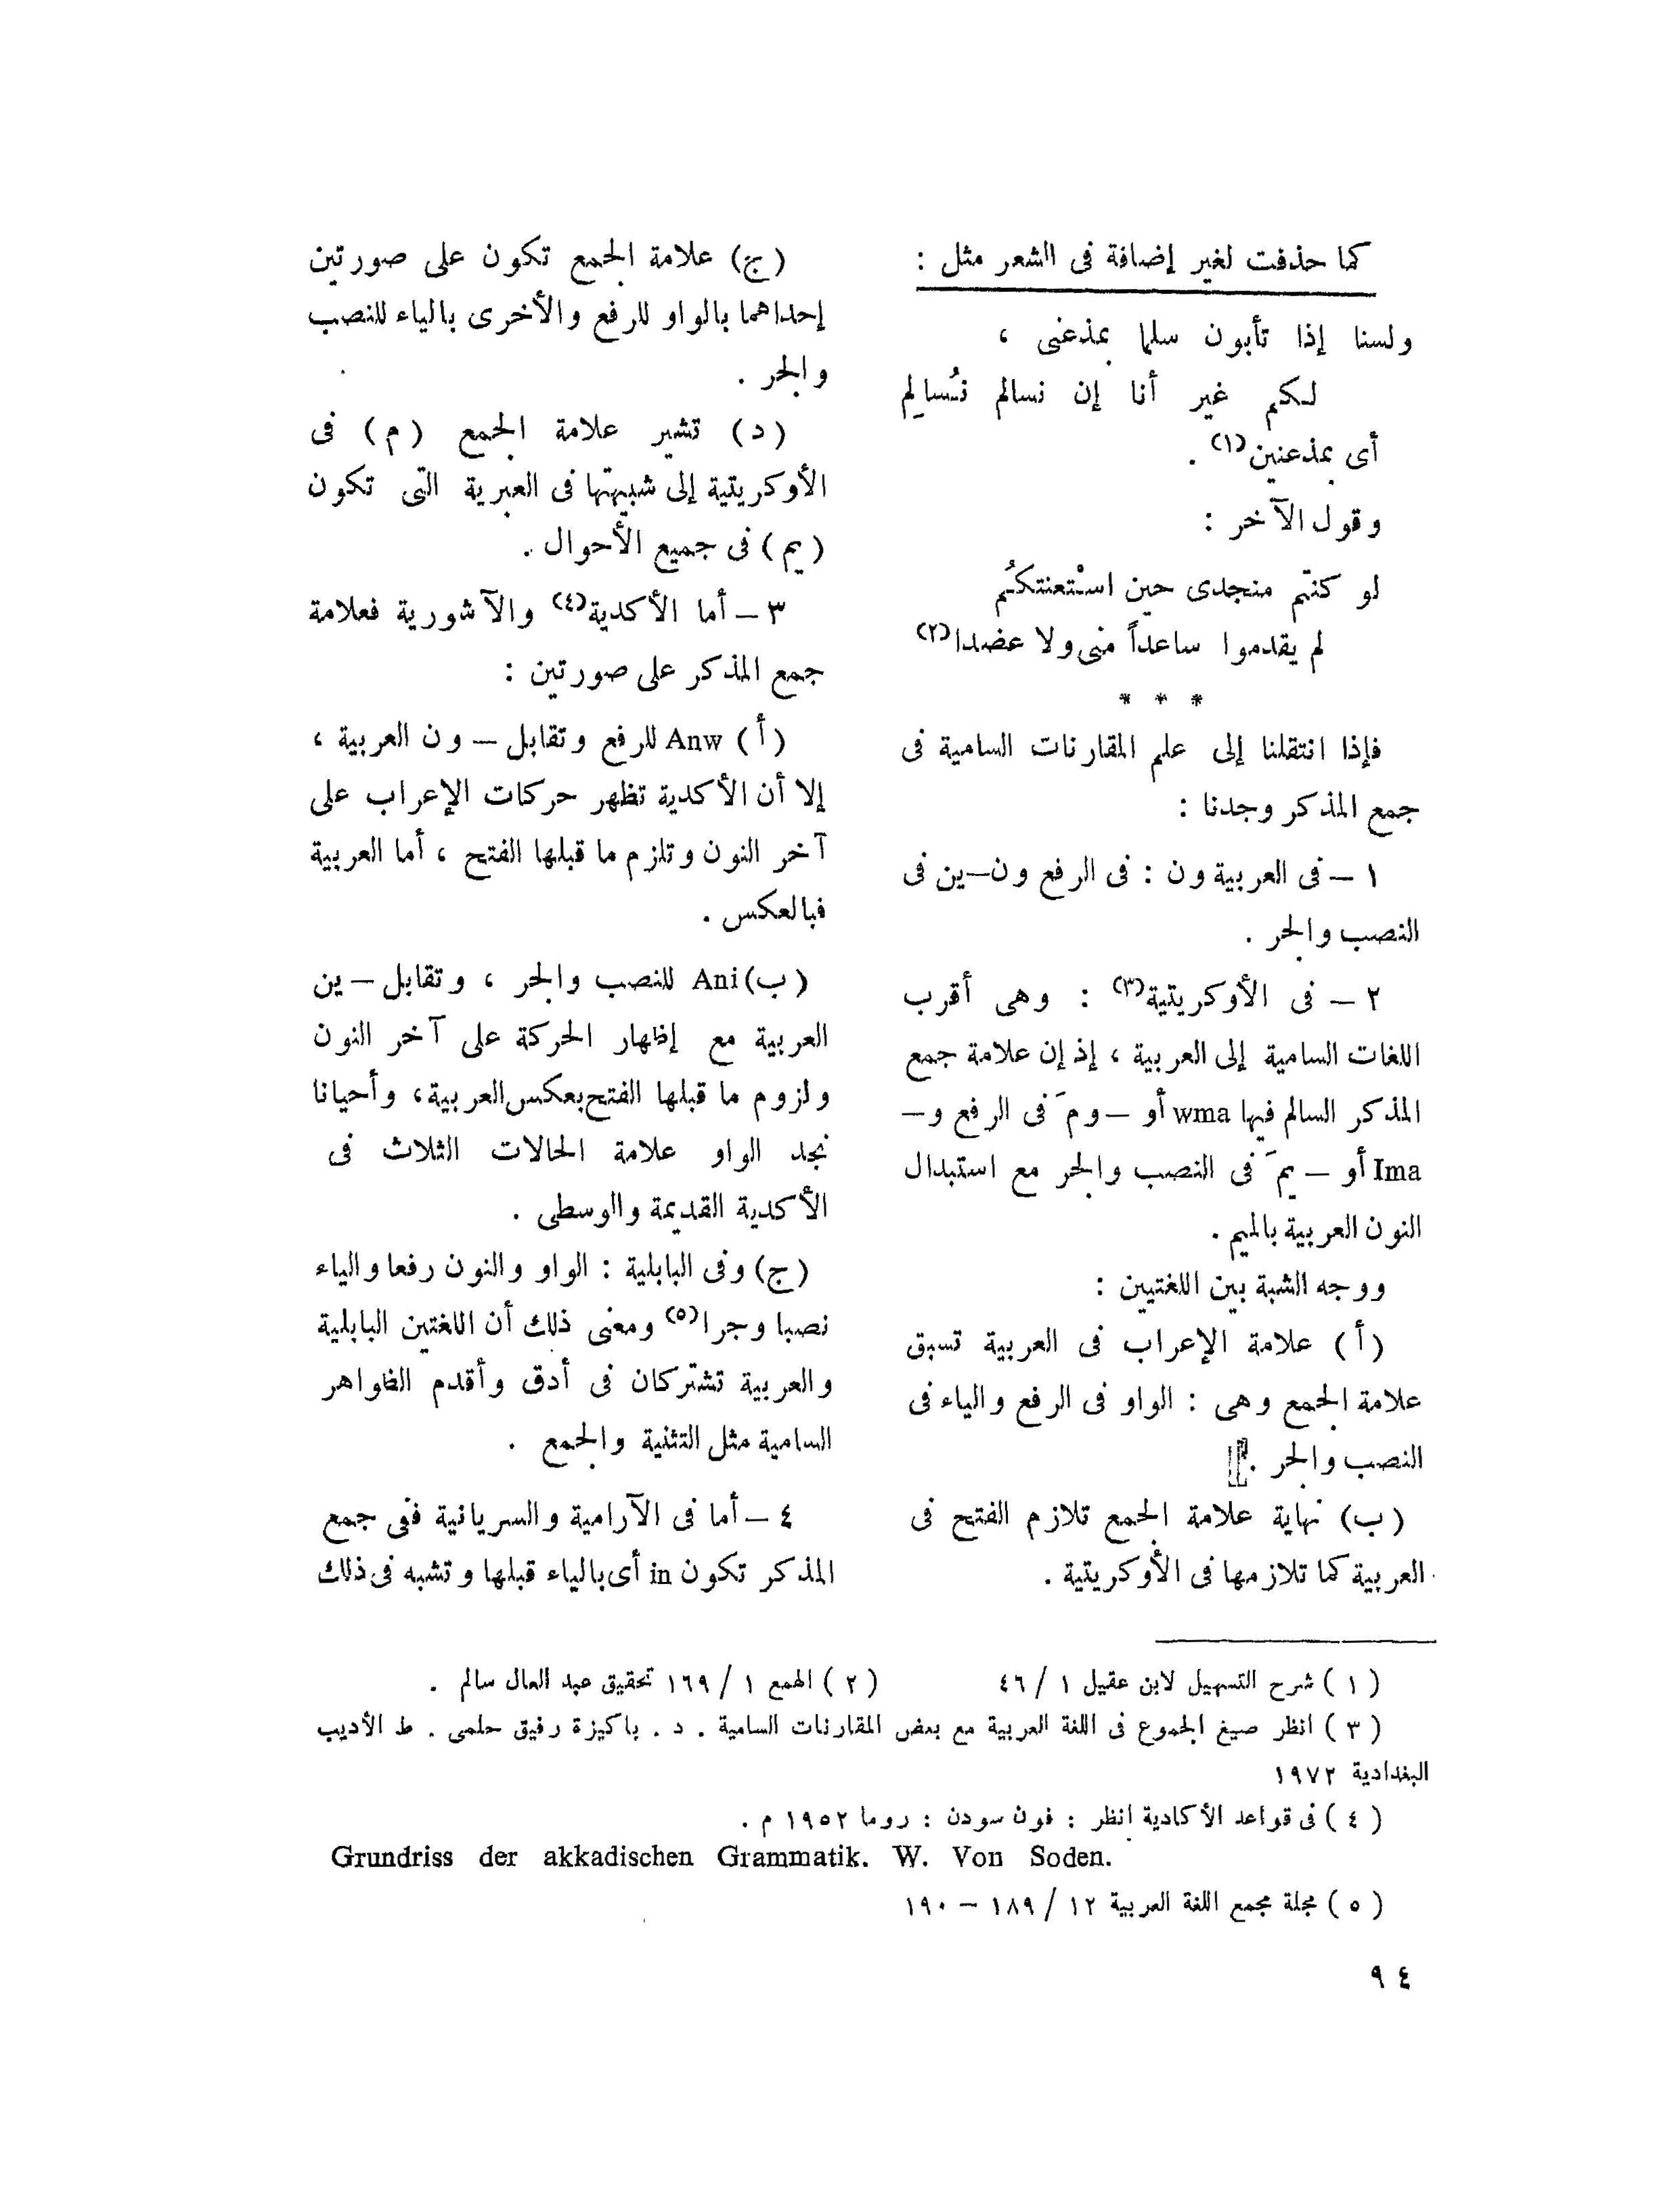 كما حذفت لغير إضافة فى الشعر مثل :
ولسنا إذا تأبون سلما بمذعنى ،
لكم غير أنا إن نسالم نُسالِم
أى بمذعنين(١) .
وقول الآخر :
لو كنتم منجدى حين استْعنتكُم
لم يقدموا ساعداً منى ولا عضدا(٢)
* * *
فإذا انتقلنا إلى علم المقارنات السامية فى
جمع المذكر وجدنا :
١ – فى العربية ون : فى الرفع ون–ين فى
النصب والجر .
٢ – فى الأوكريتية(٣) : وهى أقرب
اللغات السامية إلى العربية ، إذ إن علامة جمع
المذكر السالم فيها wma أو – ومَ فى الرفع و–
Ima أو – يمَ فى النصب والجر مع استبدال
النون العربية بالميم .
ووجه الشبة بين اللغتيين :
( أ ) علامة الإعراب فى العربية تسبق
علامة الجمع وهى : الواو فى الرفع والياء فى
النصب والجر .
( ب ) نهاية علامة الجمع تلازم الفتح فى
العربية كما تلازمها فى الأوكريتية .
( ج ) علامة الجمع تكون على صورتين
إحداهما بالواو للرفع والأخرى بالياء للنصب
والجر .
( د ) تشير علامة الجمع ( م ) فى
الأوكريتية إلى شبيهتها فى العبرية التى تكون
( يم ) فى جميع الأحوال .
٣ – أما الأكدية(٤) والآشورية فعلامة
جمع المذكر على صورتين :
( أ ) Anw للرفع وتقابل – ون العربية ،
إلا أن الأكدية تظهر حركات الإعراب على
آخر النون وتلزم ما قبلها الفتح ، أما العربية
فبالعكس .
( ب ) Ani للنصب والجر ، وتقابل – ين
العربية مع إظهار الحركة على آخر النون
ولزوم ما قبلها الفتح بعكس العربية ، وأحيانا
نجد الواو علامة الحالات الثلاث فى
الأكدية القديمة والوسطى .
( ج ) وفى البابلية : الواو والنون رفعا والياء
نصبا وجرا(٥) ومعنى ذلك أن اللغتين البابلية
والعربية تشتركان فى أدق وأقدم الظواهر
السامية مثل التثنية والجمع .
٤ – أما فى الآرامية والسريانية ففى جمع
المذكر تكون in أى بالياء قبلها وتشبه فى ذلك
( ١ ) شرح التسهيل لابن عقيل ١ / ٤٦ ( ٢ ) الهمع ١ / ١٦٩ تحقيق عبد العال سالم .
( ٣ ) انظر صيغ الجموع فى اللغة العربية مع بعض المقارنات السامية . د . باكيزة رفيق حلمى . ط الأديب
البغدادية ١٩٧٢
( ٤ ) فى قواعد الأكادية انظر : فون سودن : روما ١٩٥٢ م .
Grundriss der akkadischen Grammatik. W. Von Soden.
( ٥ ) مجلة مجمع اللغة العربية ١٢ / ١٨٩ – ١٩٠
٩٤